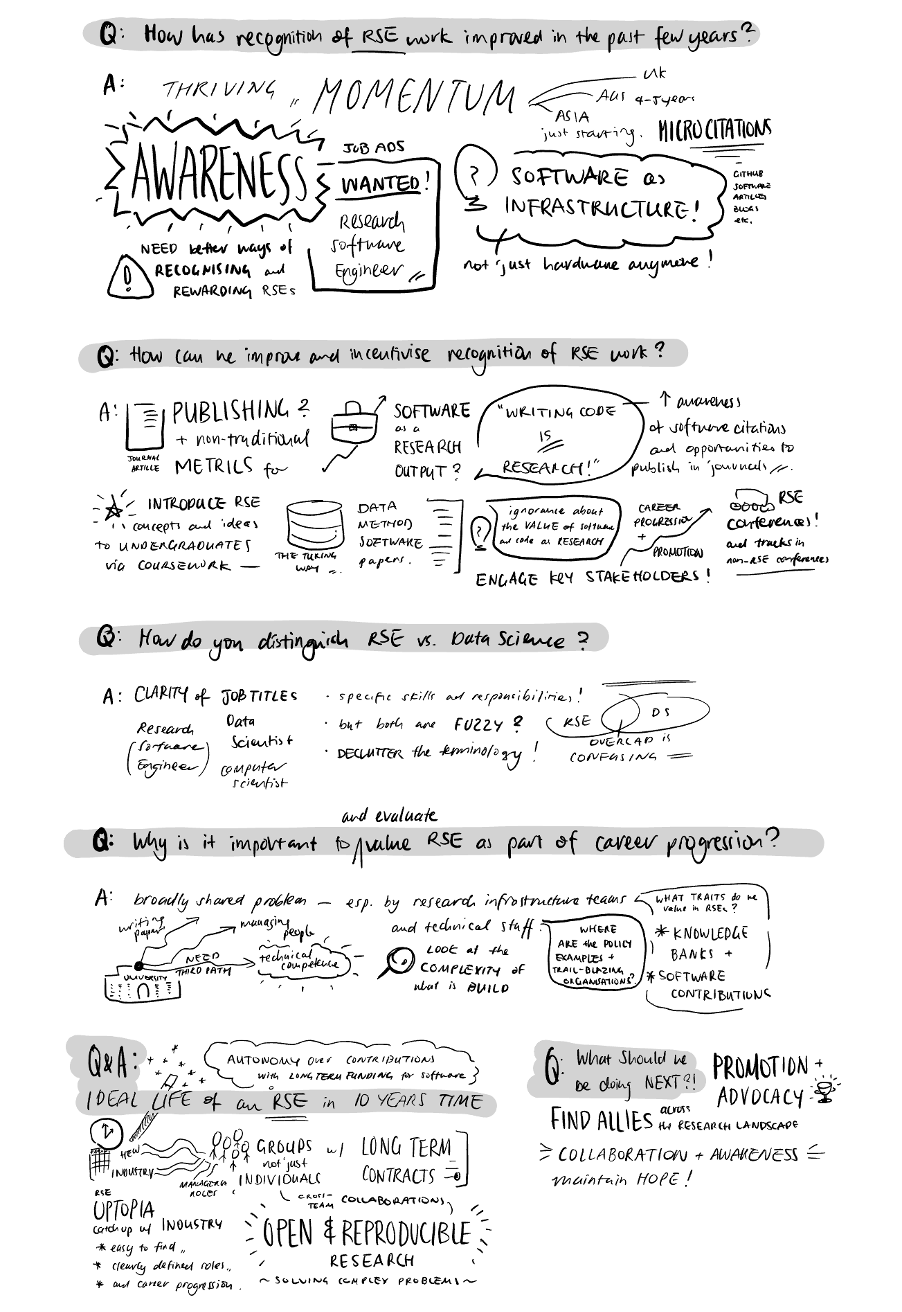 Q: How has recognition of RSE work improved in the past few years?
A: THRIVING MOMENTUM
UK
AUS 4-5 years
ASIA
just starting.
MICROCITATIONS
GITHUB
SOFTWARE
ARTICLES
BLOGS
etc.
AWARENESS
JOB ADS
WANTED!
Research
Software
Engineer
?
SOFTWARE as
INFRASTRUCTURE!
not just hardware anymore!
!
NEED better ways of
RECOGNISING and
REWARDING RSEs
Q: How can we improve and incentivise recognition of RSE work?
A:
JOURNAL
ARTICLE
PUBLISHING?
+ non-traditional
METRICS for
SOFTWARE
as a
RESEARCH
OUTPUT?
"WRITING CODE
IS
RESEARCH!"
↑ awareness
of software citations
and opportunities to
publish in journals
INTRODUCE RSE
concepts and ideas
to UNDERGRADUATES
via COURSEWORK —
THE TURING
WAY
DATA
METHOD
SOFTWARE
papers.
?
ignorance about
the VALUE of software
and code as RESEARCH
CAREER
PROGRESSION
+
PROMOTION
ENGAGE KEY STAKEHOLDERS!
RSE
conferences!
and tracks in
non-RSE conferences
Q: How do you distinguish RSE vs. Data Science?
A: CLARITY of JOB TITLES
Research
Software
Engineer
Data
Scientist
computer
scientist
· specific skills and responsibilities!
· but both are FUZZY?
· DECLUTTER the terminology!
RSE
DS
OVERLAP IS
CONFUSING
and evaluate
Q: Why is it important to value RSE as part of career progression?
A: broadly shared problem — esp. by research infrastructure teams
and technical staff.
writing
papers
managing
people
NEED
THIRD PATH
technical
competence
UNIVERSITY
LOOK at the
COMPLEXITY of
what is BUILD
WHERE
ARE the POLICY
EXAMPLES +
TRAIL-BLAZING
ORGANISATIONS?
WHAT TRAITS do we
value in RSEs?
* KNOWLEDGE
BANKS +
* SOFTWARE
CONTRIBUTIONS
Q&A:
AUTONOMY over CONTRIBUTIONS
with LONG TERM FUNDING for software
IDEAL LIFE of an RSE in 10 YEARS TIME
NEW
INDUSTRY
MANAGERIAL
ROLES
GROUPS w/
not just
INDIVIDUALS
LONG TERM
CONTRACTS
CROSS-
TEAM COLLABORATIONS
RSE
UPTOPIA
catch up w/ INDUSTRY
* easy to find
* clearly defined roles
* and career progression.
OPEN & REPRODUCIBLE
RESEARCH
~ SOLVING COMPLEX PROBLEMS ~
Q: What should we
be doing NEXT?!
PROMOTION +
ADVOCACY
FIND ALLIES across
the RESEARCH LANDSCAPE
COLLABORATION + AWARENESS
maintain HOPE!